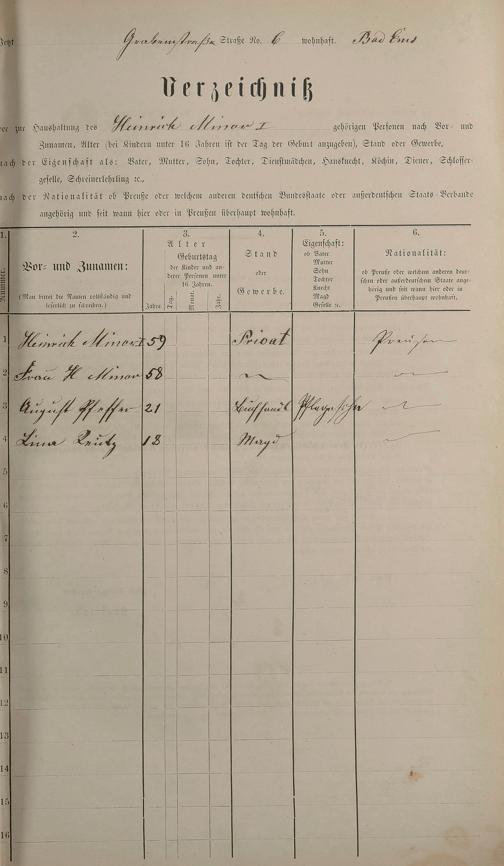 Jetzt Grabenstraße Straße No. 6 wohnhaft. Bad Ems
Verzeichniß
der zur Haushaltung des Heinrich Minor I gehörigen Personen nach Vor- und
Zunamen, Alter (bei Kindern unter 16 Jahren ist der Tag der Geburt anzugeben), Stand oder Gewerbe,
nach der Eigenschaft als: Vater, Mutter, Sohn, Tochter, Dienstmädchen, Hausknecht, Köchin, Diener, Schlosser-
geselle, Schreinerlehrling ꝛc.,
nach der Nationalität ob Preuße oder welchem anderen deutschen Bundesstaate oder außerdeutschen Staats-Verbande
angehörig und seit wann hier oder in Preußen überhaupt wohnhaft.
1. 2. 3. 4. 5. 6.
Nummer.
Vor- und Zunamen:
(Man bittet die Namen vollständig und
leserlich zu schreiben.)
Alter
Geburtstag
der Kinder und an-
derer Personen unter
16 Jahren.
Jahre Tag. Monat. Jahr.
Stand
oder
Gewerbe.
Eigenschaft:
ob Vater
Mutter
Sohn
Tochter
Knecht
Magd
Geselle ꝛc.
Nationalität:
ob Preuße oder welchem anderen deut-
schen oder außerdeutschen Staate ange-
hörig und seit wann hier oder in
Preußen überhaupt wohnhaft.
1 Heinrich Minor I 59 Privat Preußen
2 Frau H Minor 58 〃 〃
3 August Pfeffer 21 Buchhandl Pflegesohn 〃
4 Lina Reutz 18 Magd 〃
5
6
7
8
9
10
11
12
13
14
15
16